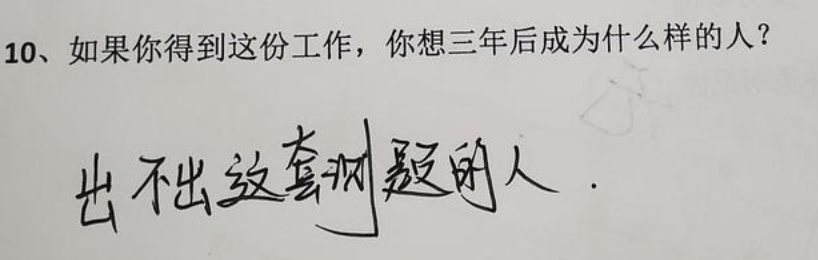 10、如果你得到这份工作，你想三年后成为什么样的人？
出不出这套测题的人．